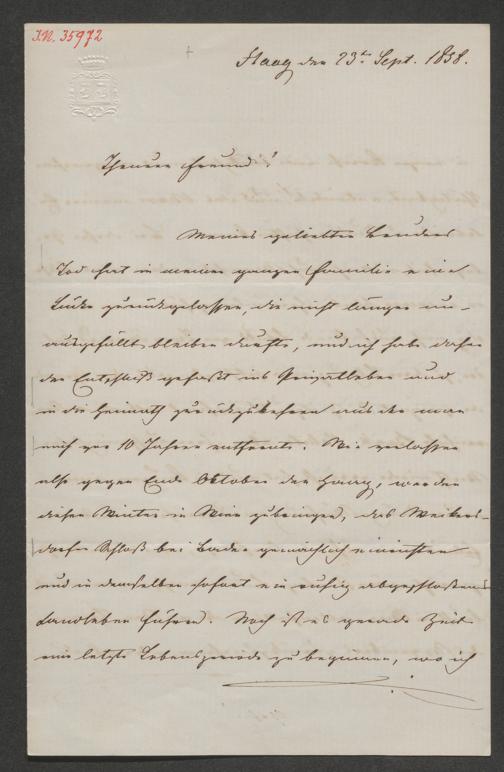 I.N. 35972
Haag den 23ten Sept. 1858.
Theurer Freund!
Meines geliebten Bruders
Tod hat in meiner ganzen Familie eine
Lücke zurückgelassen, die nicht länger un-
ausgefüllt bleiben durfte, und ich habe daher
den Entschluß gefaßt ins Privatleben und
in die Heimath zurückzukehren aus der man
mich vor 10 Jahren entfernte. Wir verlassen
also gegen Ende Oktober den Haag, werden
diesen Winter in Wien zubringen, das Weikers-
dorfer Schloß bei Baden gemächlich einrichten
und in demselben sofort ein ruhig abgeschloßenes
Landleben führen. Noch ist es gerade Zeit
eine letzte Lebensperiode zu beginnen, wo ich